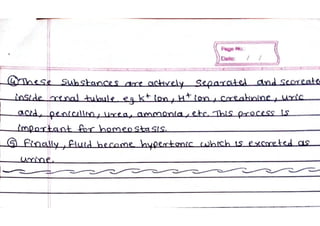 Page No.
Date: / /
④ These substances are actively separated and secreate
inside renal tubule eg K+ Ion, H+ Ion, creatinine, uric
acid, penicillin, urea, ammonia, etc. This process is
important for homeostasis.
⑤ Finally, fluid become hypertonic which is excreted as
urine.